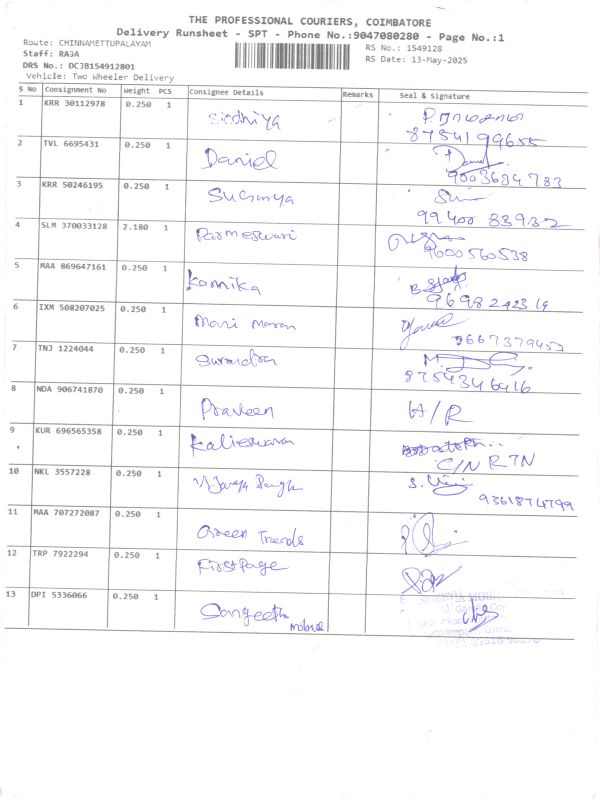 THE PROFESSIONAL COURIERS, COIMBATORE
Delivery Runsheet - SPT - Phone No.:9047080280 - Page No.:1
Route: CHINNAMETTUPALAYAM
Staff: RAJA
DRS No.: DCJB154912801
Vehicle: Two Wheeler Delivery
RS No.: 1549128
RS Date: 13-May-2025
S No Consignment No Weight PCS Consignee Details Remarks Seal & Signature
1 KRR 30112978 0.250 1 Sindhiya
8754199655
2 TVL 6695431 0.250 1 Daniel
9003634783
3 KRR 50246195 0.250 1 Suganya
99400 83932
4 SLM 370033128 2.180 1 Parmeswari
9600560538
5 MAA 869647161 0.250 1 Kannika
9698242319
6 IXM 508207025 0.250 1 Mani maran
9667379457
7 TNJ 1224044 0.250 1 Surendran
8754346416
8 NDA 906741870 0.250 1 Praveen H/R
9 KUR 696565358 0.250 1 Kalieswaran
C/N RTN
10 NKL 3557228 0.250 1 Vijaya
9361874799
11 MAA 707272087 0.250 1 Green Trends
12 TRP 7922294 0.250 1 First Page
13 DPI 5336066 0.250 1 Sangeetha mobile